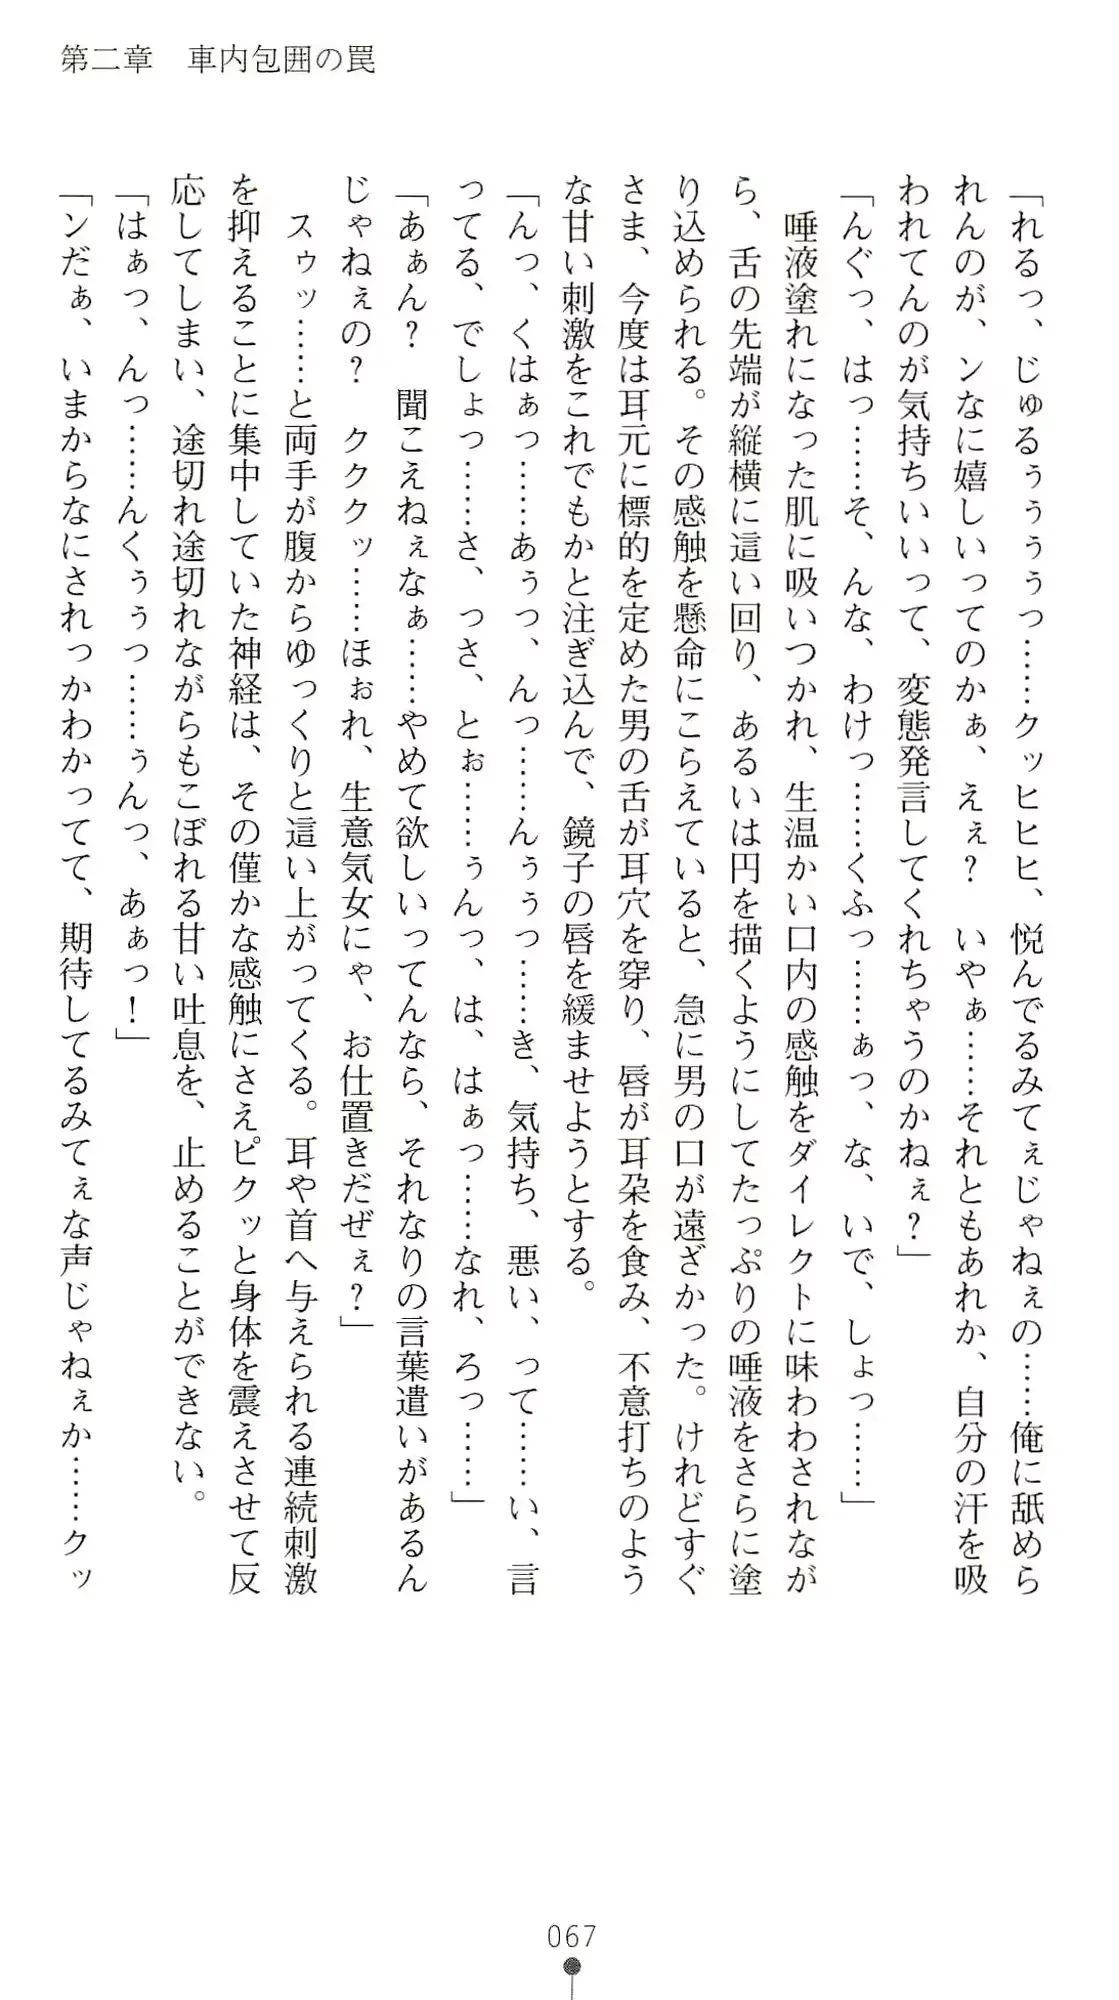 第二章　車内包囲の罠
「れるっ、じゅるぅぅぅっ……クッヒヒヒ、悦んでるみてぇじゃねぇの……俺に舐めら
れんのが、ンなに嬉しいってのかぁ、えぇ？　いやぁ……それともあれか、自分の汗を吸
われてんのが気持ちいいって、変態発言してくれちゃうのかねぇ？」
「んぐっ、はっ……そ、んな、わけっ……くふっ……ぁっ、な、いで、しょっ……」
　唾液塗れになった肌に吸いつかれ、生温かい口内の感触をダイレクトに味わわされなが
ら、舌の先端が縦横に這い回り、あるいは円を描くようにしてたっぷりの唾液をさらに塗
り込められる。その感触を懸命にこらえていると、急に男の口が遠ざかった。けれどすぐ
さま、今度は耳元に標的を定めた男の舌が耳穴を穿り、唇が耳朶を食み、不意打ちのよう
な甘い刺激をこれでもかと注ぎ込んで、鏡子の唇を緩ませようとする。
「んっ、くはぁっ……あぅっ、んっ……んぅぅっ……き、気持ち、悪い、って……い、言
ってる、でしょっ……さ、っさ、とぉ……ぅんっ、は、はぁっ……なれ、ろっ……」
「あぁん？　聞こえねぇなぁ……やめて欲しいってんなら、それなりの言葉遣いがあるん
じゃねぇの？　クククッ……ほぉれ、生意気女にゃ、お仕置きだぜぇ？」
　スゥッ……と両手が腹からゆっくりと這い上がってくる。耳や首へ与えられる連続刺激
を抑えることに集中していた神経は、その僅かな感触にさえピクッと身体を震えさせて反
応してしまい、途切れ途切れながらもこぼれる甘い吐息を、止めることができない。
「はぁっ、んっ……んくぅぅっ……ぅんっ、あぁっ！」
「ンだぁ、いまからなにされっかわかってて、期待してるみてぇな声じゃねぇか……クッ
067